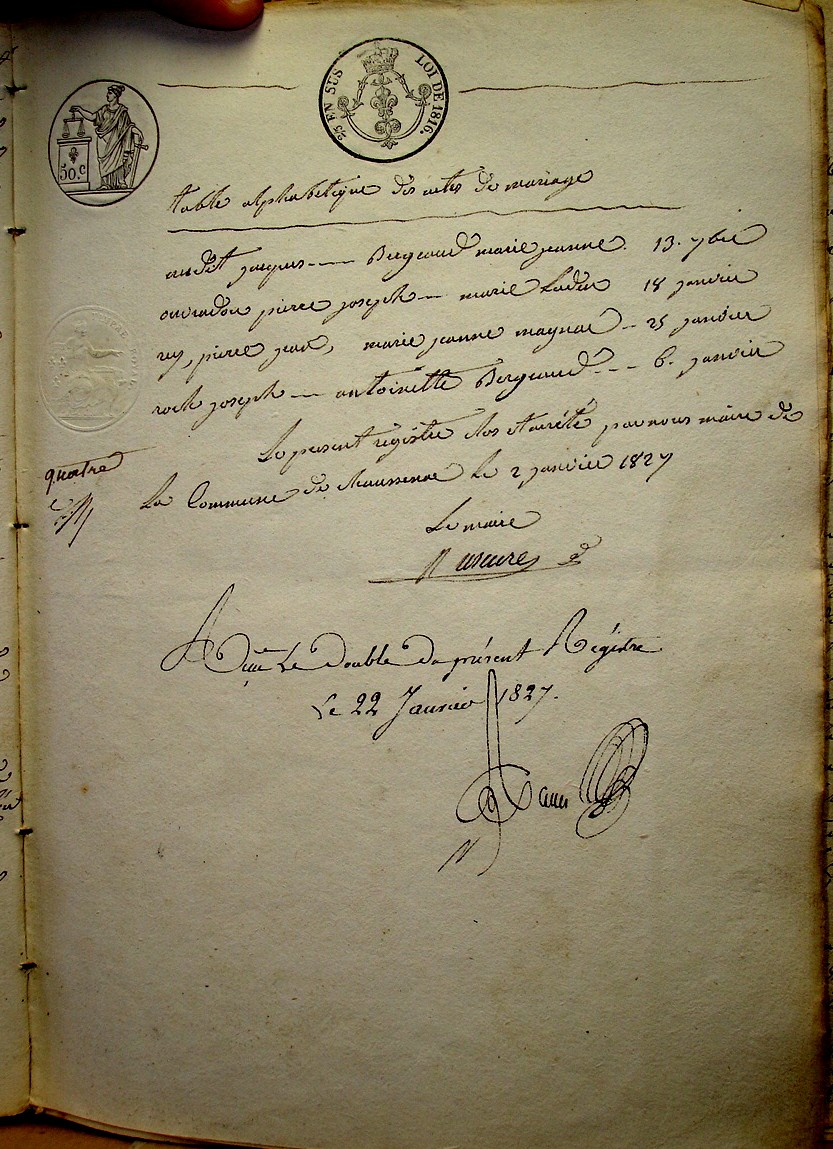 25 EN SUS LOI DE 1816.
50.c
table alphabetique des actes de mariage
audit jacques ---- Bergeaud marie jeanne. 13. 7bre
ouradou pierre joseph --- marie 18 janvier
rey, pierre jean, marie jeanne magnac -- 25 janvier
roch joseph --- antoinette Bergeaud --- 6. janvier
Le present registre clos et arrêté par nous maire de
quatre
La Commune de Maussenac le 2 janvier 1827
Le maire
le Double du présent Régistre
Le 22 Janvier 1827.